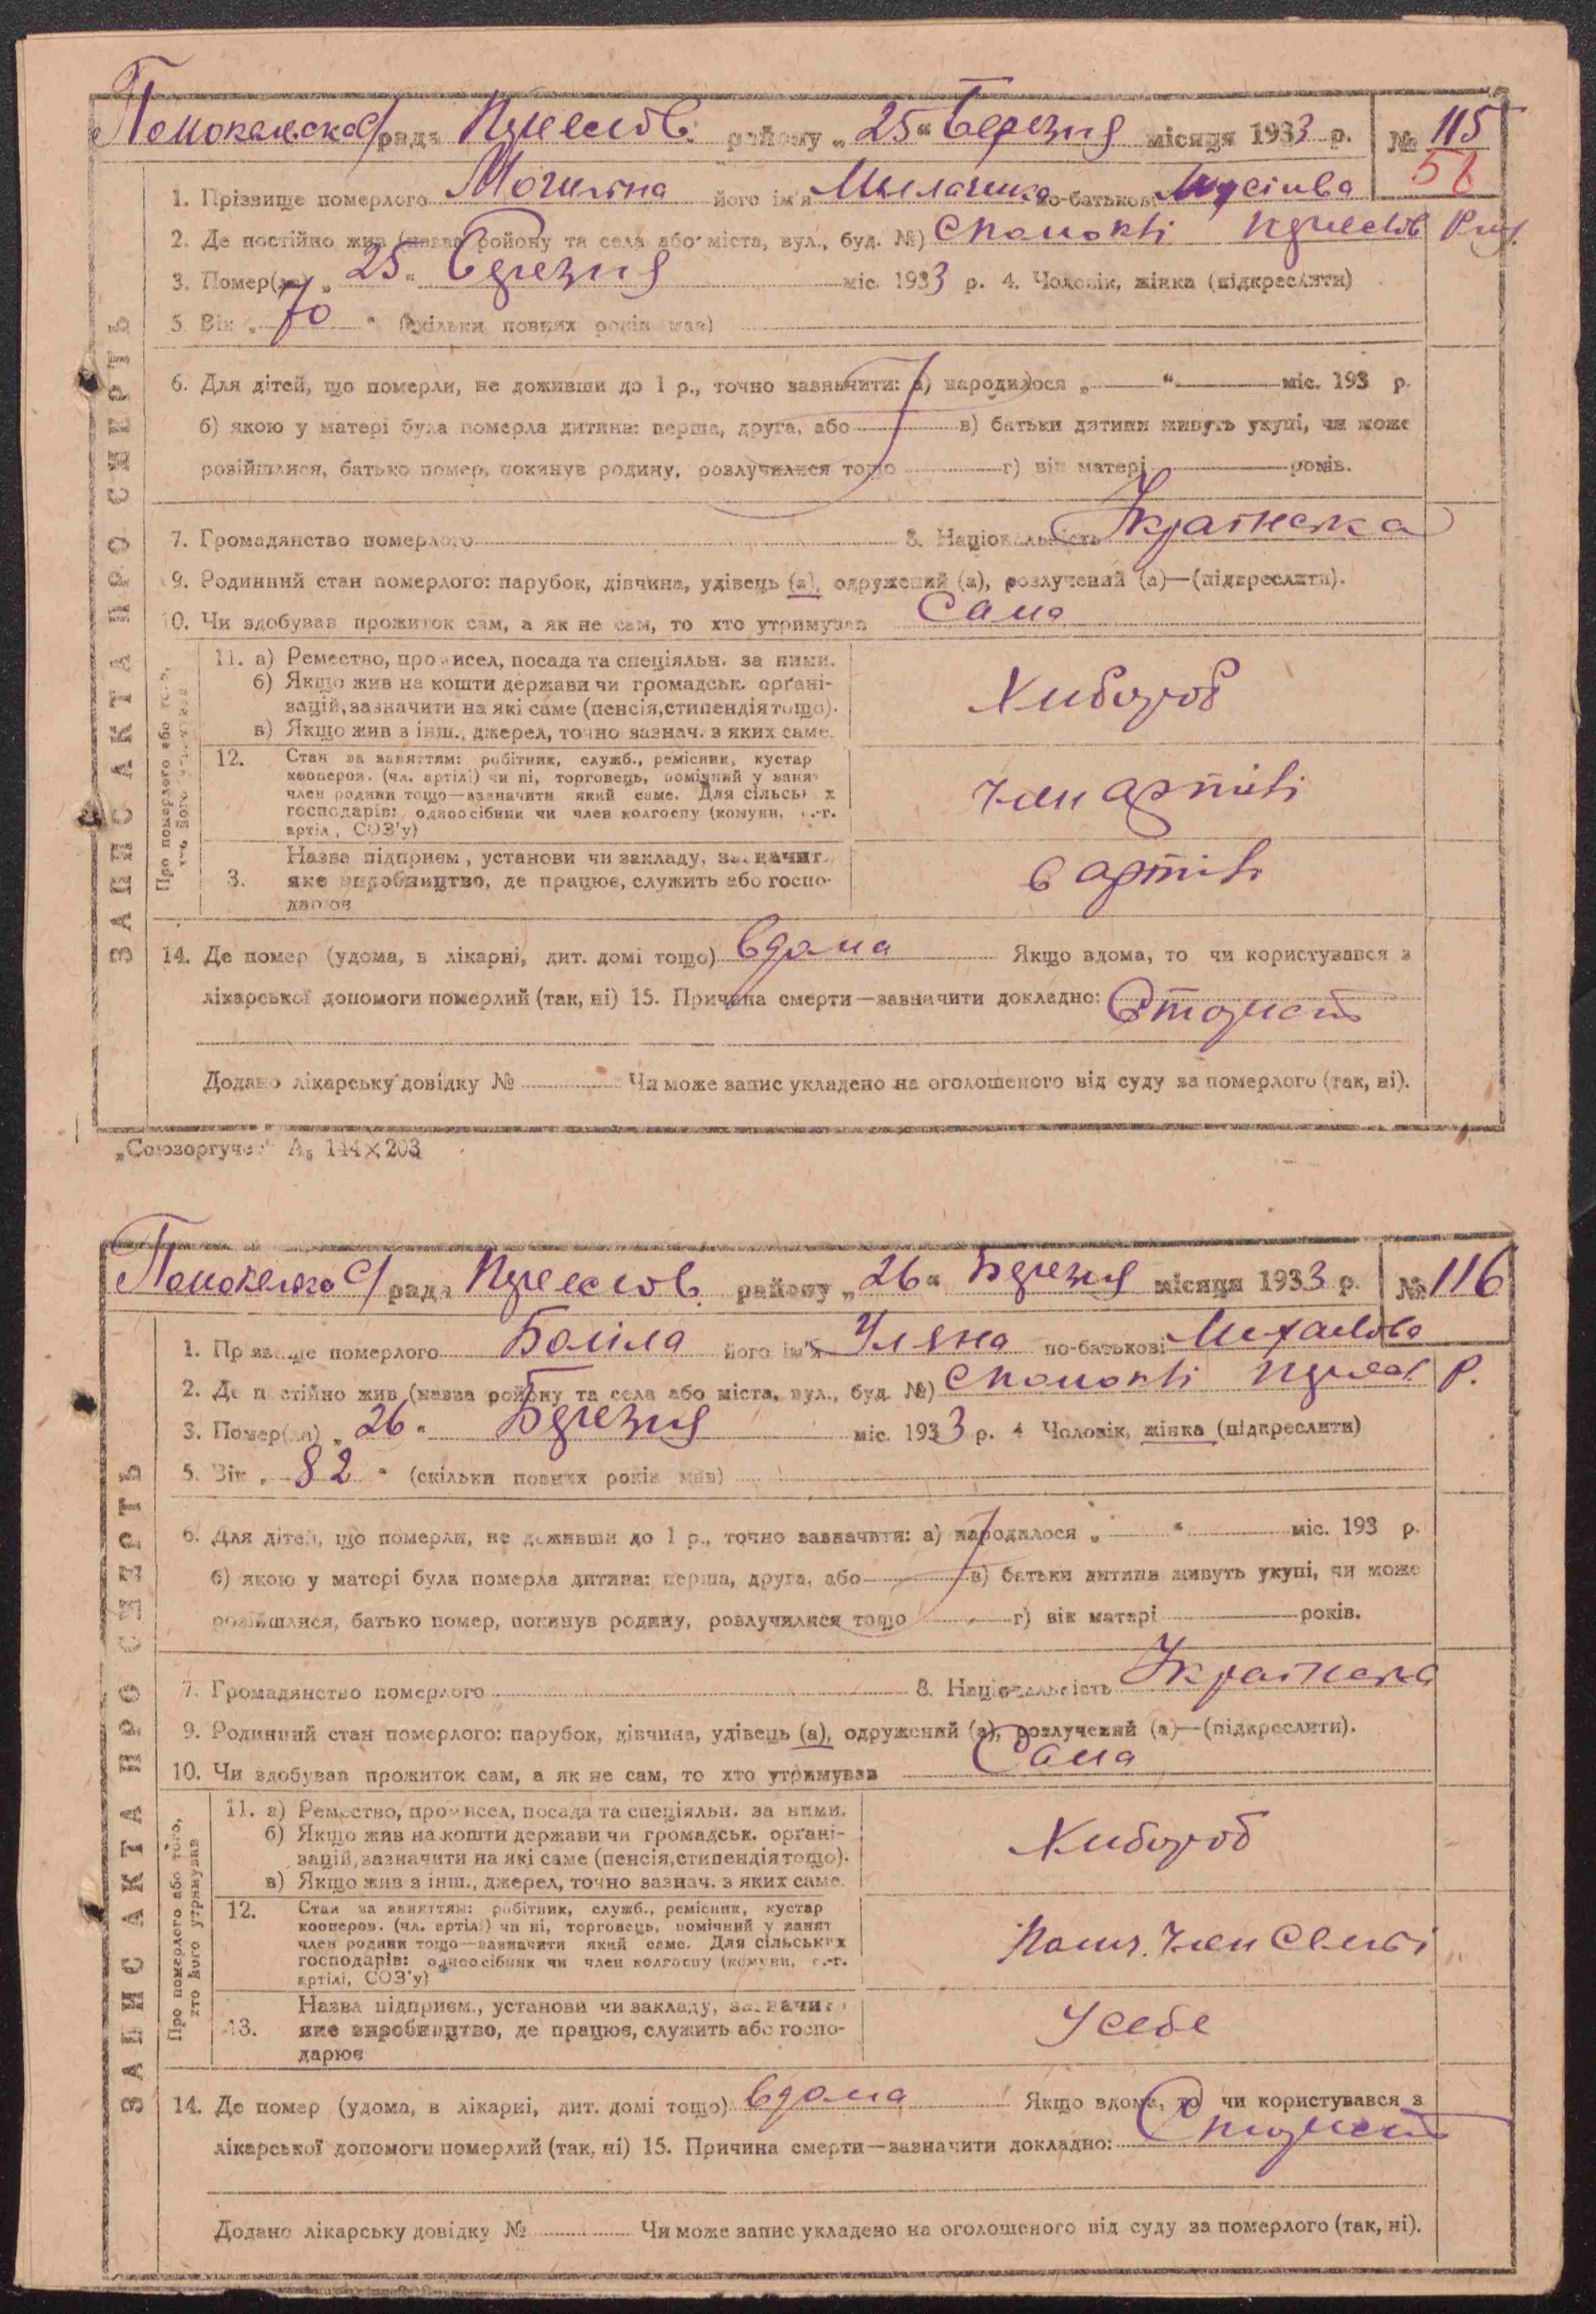 Помокельска С/рада Переяслов. району „25“ Березня місяця 1933 р. № 115
58
ЗАПИС АКТА ПРО СМЕРТЬ
1. Прізвище померлого Могильна його ім'я по-батькові Мусіива
2. Де постійно жив (назва району та села або міста, вул., буд. №) С Помоклі Переяслів Рай.
3. Помер(ла) „25“ Березня міс. 1933 р. 4. Чоловік, жінка (підкреслити)
5. Вік „70“ (скільки повних років мав)
6. Для дітей, що померли, не доживши до 1 р., точно зазначити: а) народилося „ “ міс. 193 р.
б) якою у матері була померла дитина: перша, друга, або в) батьки дитини живуть укупі, чи може
розійшлися, батько помер, покинув родину, розлучилися тощо г) вік матері років.
7. Громадянство померлого 8. Національність Українська
9. Родинний стан померлого: парубок, дівчина, удівець (а), одружений (а), розлучений (а)—(підкреслити).
10. Чи здобував прожиток сам, а як не сам, то хто утримував Сама
Про померлого або того, хто його утримував
11. а) Ремество, промисел, посада та спеціяльн. за ними.
б) Якщо жив на кошти держави чи громадськ. органі-
зацій, зазначити на які саме (пенсія, стипендія тощо).
в) Якщо жив з інш., джерел, точно зазнач. з яких саме.
Хлібороб
12. Стан за заняттям: робітник, служб., ремісник, кустар
кооперов. (чл. артілі) чи ні, торговець, помічний у занят
член родини тощо—зазначити який саме. Для сільських
господарів: одноосібник чи член колгоспу (комуни, с.-г.
артіл, СОЗ'у)
Член артілі
3. Назва підприєм., установи чи закладу, зазначит
яке виробництво, де працює, служить або госпо-
дарює
в артілі
14. Де помер (удома, в лікарні, дит. домі тощо) вдома Якщо вдома, то чи користувався з
лікарської допомоги померлий (так, ні) 15. Причина смерти—зазначити докладно:
Додано лікарську довідку № Чи може запис укладено на оголошеного від суду за померлого (так, ні).
„Союзоргучет“ А₅ 144×203
Помокельска С/рада Переяслов. району „26“ Березня місяця 1933 р. № 116
ЗАПИС АКТА ПРО СМЕРТЬ
1. Прізвище померлого його ім'я Уляна по-батькові Михайлова
2. Де постійно жив (назва району та села або міста, вул., буд. №) С Помоклі Переяслі Р.
3. Помер(ла) „26“ Березня міс. 1933 р. 4 Чоловік, жінка (підкреслити)
5. Вік „82“ (скільки повних років мав)
6. Для дітей, що померли, не доживши до 1 р., точно зазначити: а) народилося „ “ міс. 193 р.
б) якою у матері була померла дитина: перша, друга, або в) батьки дитини живуть укупі, чи може
розійшлися, батько помер, покинув родину, розлучилися тощо г) вік матері років.
7. Громадянство померлого 8. Національність Українська
9. Родинний стан померлого: парубок, дівчина, удівець (а), одружений (а), розлучений (а)—(підкреслити).
10. Чи здобував прожиток сам, а як не сам, то хто утримував Сама
Про померлого або того, хто його утримував
11. а) Ремество, промисел, посада та спеціяльн. за ними.
б) Якщо жив на кошти держави чи громадськ. органі-
зацій, зазначити на які саме (пенсія, стипендія тощо).
в) Якщо жив з інш., джерел, точно зазнач. з яких саме.
Хлібороб
12. Стан за заняттям: робітник, служб., ремісник, кустар
кооперов. (чл. артілі) чи ні, торговець, помічний у занят
член родини тощо—зазначити який саме. Для сільських
господарів: одноосібник чи член колгоспу (комуни, с.-г.
артілі, СОЗ'у)
Поміч. Член Семьі
13. Назва підприєм., установи чи закладу, зазначит
яке виробництво, де працює, служить або госпо-
дарює
У себе
14. Де помер (удома, в лікарні, дит. домі тощо) вдома Якщо вдома, то чи користувався з
лікарської допомоги померлий (так, ні) 15. Причина смерти—зазначити докладно:
Додано лікарську довідку № Чи може запис укладено на оголошеного від суду за померлого (так, ні).